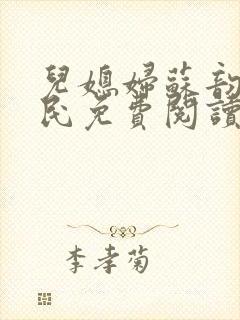 兒媳婦蘇韵
民免費閱讀
李孝菊